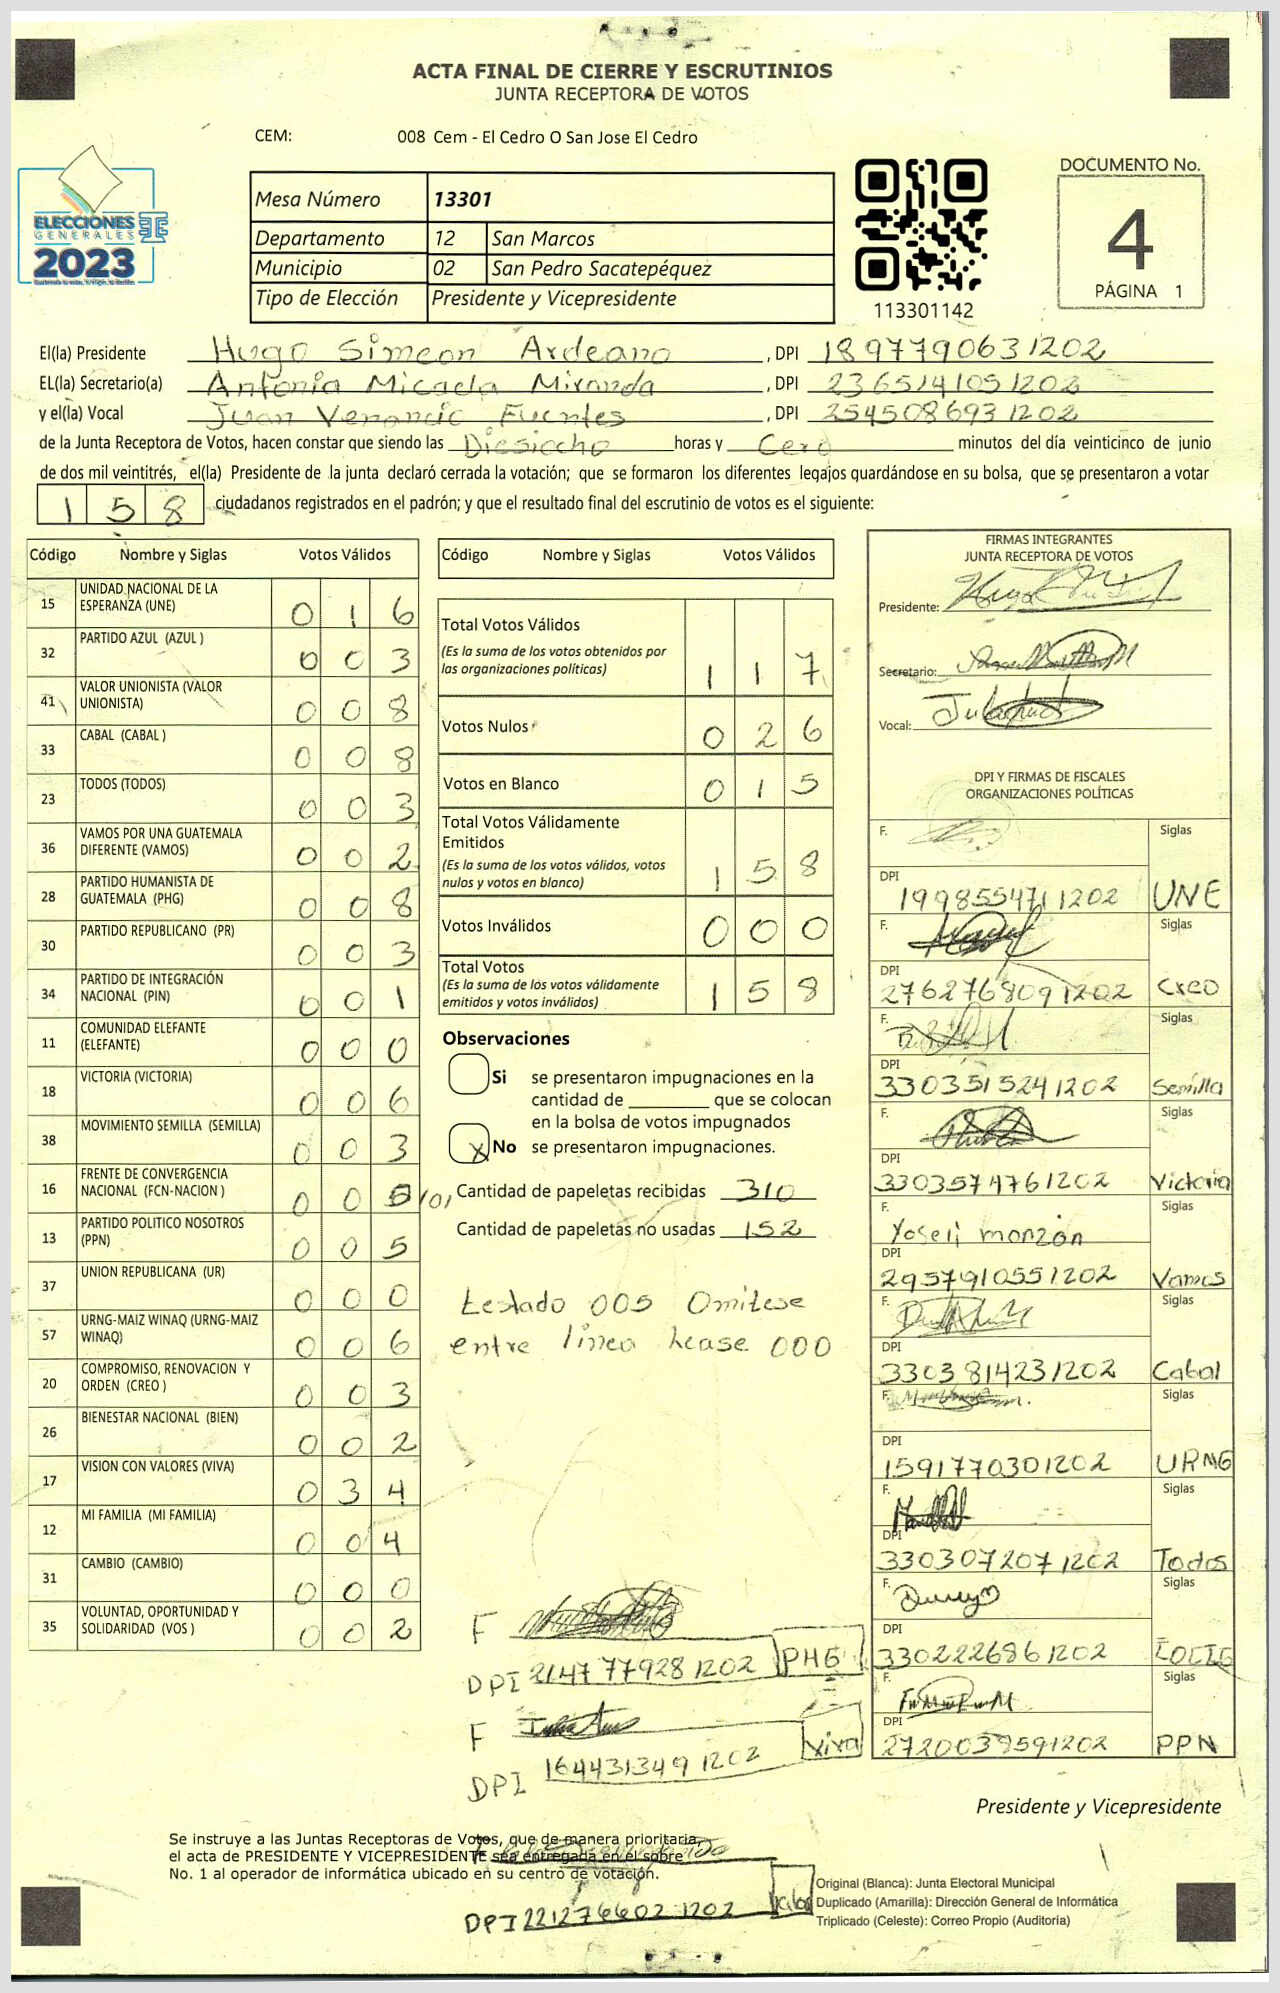 ACTA FINAL DE CIERRE Y ESCRUTINIOS
JUNTA RECEPTORA DE VOTOS
CEM: 008 Cem - El Cedro O San Jose El Cedro
ELECCIONES
GENERALES
2023
Mesa Número 13301
Departamento 12 San Marcos
Municipio 02 San Pedro Sacatepéquez
Tipo de Elección Presidente y Vicepresidente
113301142
DOCUMENTO No.
4
PÁGINA 1
El(la) Presidente Hugo Simeon Ardeano, DPI 1897790631202
EL(la) Secretario(a) Antonia Micaela Miranda, DPI 2365141051202
y el(la) Vocal Juan Venancio Fuentes, DPI 2545086931202
de la Junta Receptora de Votos, hacen constar que siendo las Diesiocho horas y Cero minutos del día veinticinco de junio
de dos mil veintitrés, el(la) Presidente de la junta declaró cerrada la votación; que se formaron los diferentes legajos quardándose en su bolsa, que se presentaron a votar
158 ciudadanos registrados en el padrón; y que el resultado final del escrutinio de votos es el siguiente:
Código Nombre y Siglas Votos Válidos
15 UNIDAD NACIONAL DE LA ESPERANZA (UNE) 016
32 PARTIDO AZUL (AZUL ) 003
41 VALOR UNIONISTA (VALOR UNIONISTA) 008
33 CABAL (CABAL ) 008
23 TODOS (TODOS) 003
36 VAMOS POR UNA GUATEMALA DIFERENTE (VAMOS) 002
28 PARTIDO HUMANISTA DE GUATEMALA (PHG) 008
30 PARTIDO REPUBLICANO (PR) 003
34 PARTIDO DE INTEGRACIÓN NACIONAL (PIN) 001
11 COMUNIDAD ELEFANTE (ELEFANTE) 000
18 VICTORIA (VICTORIA) 006
38 MOVIMIENTO SEMILLA (SEMILLA) 003
16 FRENTE DE CONVERGENCIA NACIONAL (FCN-NACION ) 005 /0/
13 PARTIDO POLITICO NOSOTROS (PPN) 005
37 UNION REPUBLICANA (UR) 000
57 URNG-MAIZ WINAQ (URNG-MAIZ WINAQ) 006
20 COMPROMISO, RENOVACION Y ORDEN (CREO ) 003
26 BIENESTAR NACIONAL (BIEN) 002
17 VISION CON VALORES (VIVA) 034
12 MI FAMILIA (MI FAMILIA) 004
31 CAMBIO (CAMBIO) 000
35 VOLUNTAD, OPORTUNIDAD Y SOLIDARIDAD (VOS ) 002
Código Nombre y Siglas Votos Válidos
Total Votos Válidos 117
(Es la suma de los votos obtenidos por
las organizaciones políticas)
Votos Nulos 026
Votos en Blanco 015
Total Votos Válidamente
Emitidos 158
(Es la suma de los votos válidos, votos
nulos y votos en blanco)
Votos Inválidos 000
Total Votos 158
(Es la suma de los votos válidamente
emitidos y votos inválidos)
Observaciones
Si se presentaron impugnaciones en la
cantidad de ________ que se colocan
en la bolsa de votos impugnados
X No se presentaron impugnaciones.
Cantidad de papeletas recibidas 310
Cantidad de papeletas no usadas 152
testado 005 Omitese
entre linea lease 000
F
DPI 2147779281202 PHG
F
DPI 1644313491202 Viva
DPI 2212766021202
FIRMAS INTEGRANTES
JUNTA RECEPTORA DE VOTOS
Presidente:
Secretario:
Vocal:
DPI Y FIRMAS DE FISCALES
ORGANIZACIONES POLÍTICAS
F. Siglas
DPI 1998554711202 UNE
F. Siglas
DPI 2762768091202 Creo
F. Siglas
DPI 3303515241202 Semilla
F. Siglas
DPI 3303574761202 Victoria
F. Yoseli monzón Siglas
DPI 2957910551202 Vamos
F. Siglas
DPI 3303814231202 Cabal
F. Siglas
DPI 1591770301202 URNG
F. Siglas
DPI 3303072071202 Todos
F. Siglas
DPI 3302226861202
F. Siglas
DPI 2720039591202 PPN
Presidente y Vicepresidente
Se instruye a las Juntas Receptoras de Votos, que de manera prioritaria,
el acta de PRESIDENTE Y VICEPRESIDENTE sea entregada en el sobre
No. 1 al operador de informática ubicado en su centro de votación.
Original (Blanca): Junta Electoral Municipal
Duplicado (Amarilla): Dirección General de Informática
Triplicado (Celeste): Correo Propio (Auditoría)